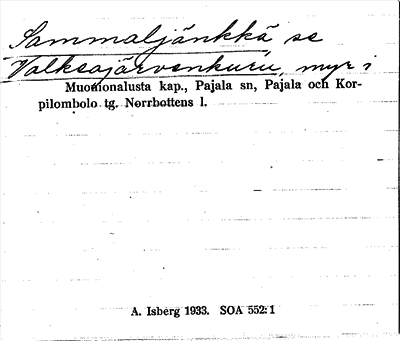 Sammaljänkkä se
Valkeajärvenkuru, myr i
Muonionalusta kap., Pajala sn, Pajala och Kor-
pilombolo tg. Norrbottens l.
A. Isberg 1933. SOA 552:1